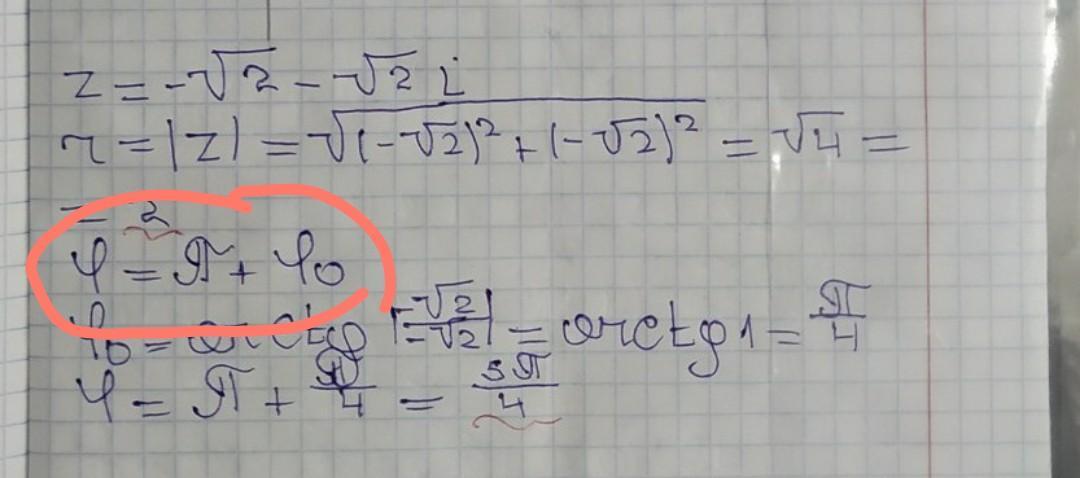 z = -√2 - √2 i
r = |z| = √((-√2)² + (-√2)²) = √4 =
= 2
φ = π + φ₀
φ₀ = arctg |-√2/-√2| = arctg 1 = π/4
φ = π + π/4 = 5π/4